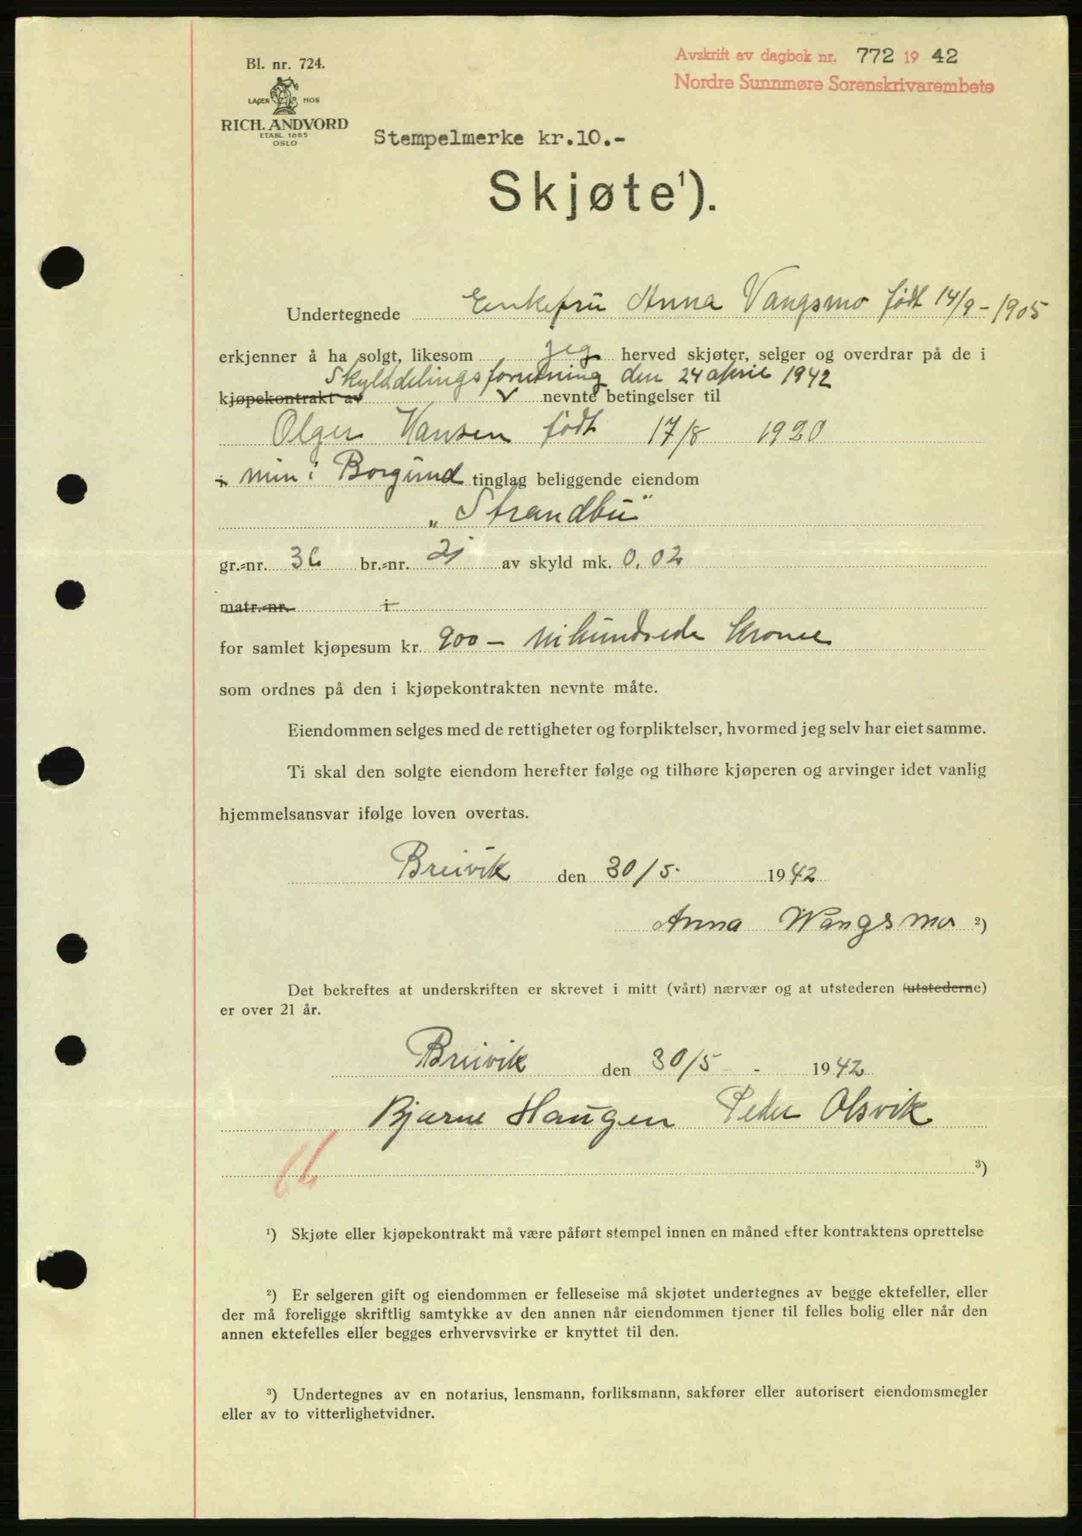 Bl. nr. 724.
LAGER HOS
RICH. ANDVORD
ETABL. 1865
OSLO
Avskrift av dagbok nr. 772 19 42
Nordre Sunnmøre Sorenskrivarembete
Stempelmerke kr.10.-
Skjøte¹).
Undertegnede Enkefru Anna Vangsmo født 14/9 - 1905
erkjenner å ha solgt, likesom jeg herved skjøter, selger og overdrar på de i
Skylddelingsforretning den 24 april 1942
kjøpekontrakt av nevnte betingelser til
Olger Hansen født 17/8 1920
i min i Borgund tinglag beliggende eiendom
„Strandbu"
gr.-nr. 36 br.-nr. 21 av skyld mk. 0,02
matr.-nr. i
for samlet kjøpesum kr. 900 - nihundrede kroner
som ordnes på den i kjøpekontrakten nevnte måte.
Eiendommen selges med de rettigheter og forpliktelser, hvormed jeg selv har eiet samme.
Ti skal den solgte eiendom herefter følge og tilhøre kjøperen og arvinger idet vanlig
hjemmelsansvar ifølge loven overtas.
Breivik den 30/5. 1942
Anna Wangsmo ²)
Det bekreftes at underskriften er skrevet i mitt (vårt) nærvær og at utstederen (utstederne)
er over 21 år.
Breivik den 30/5 - 1942
Bjarne Haugen Peder Olsvik
³)
¹) Skjøte eller kjøpekontrakt må være påført stempel innen en måned efter kontraktens oprettelse
²) Er selgeren gift og eiendommen er felleseise må skjøtet undertegnes av begge ektefeller, eller
der må foreligge skriftlig samtykke av den annen når eiendommen tjener til felles bolig eller når den
annen ektefelles eller begges erhvervsvirke er knyttet til den.
³) Undertegnes av en notarius, lensmann, forliksmann, sakfører eller autorisert eiendomsmegler
eller av to vitterlighetvidner.